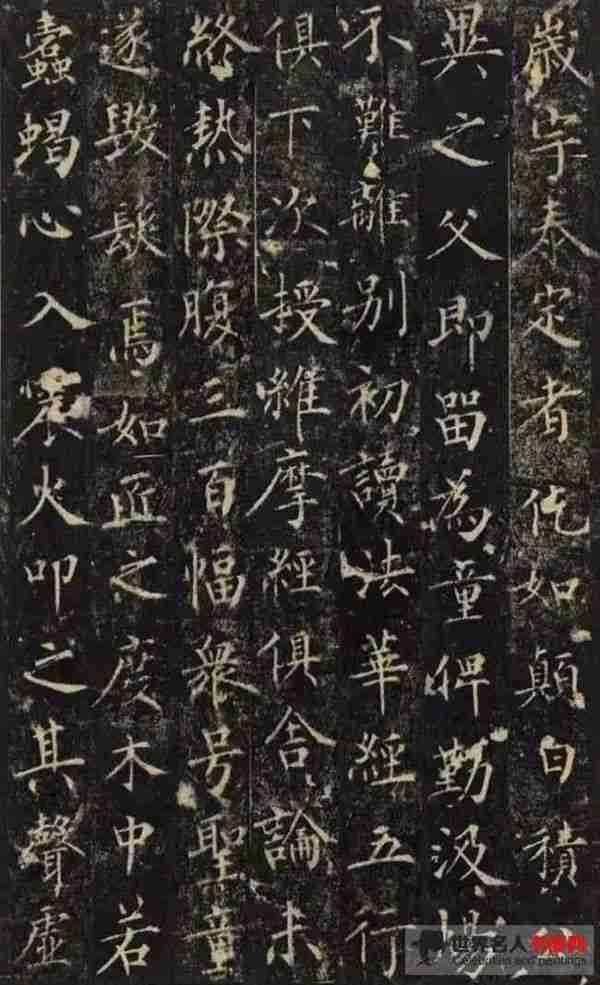 歲宇泰定者仡如顛白積
異之父即留為童俾勤汲
不難離別初讀法華經五行
俱下次授維摩經俱舍論未
終熱際腹三百幅衆号聖童
遂毀髮焉如匠之度木中若
蠹蝎心入火叩之其聲虛
世界名人书画网
Celebrities and paintings